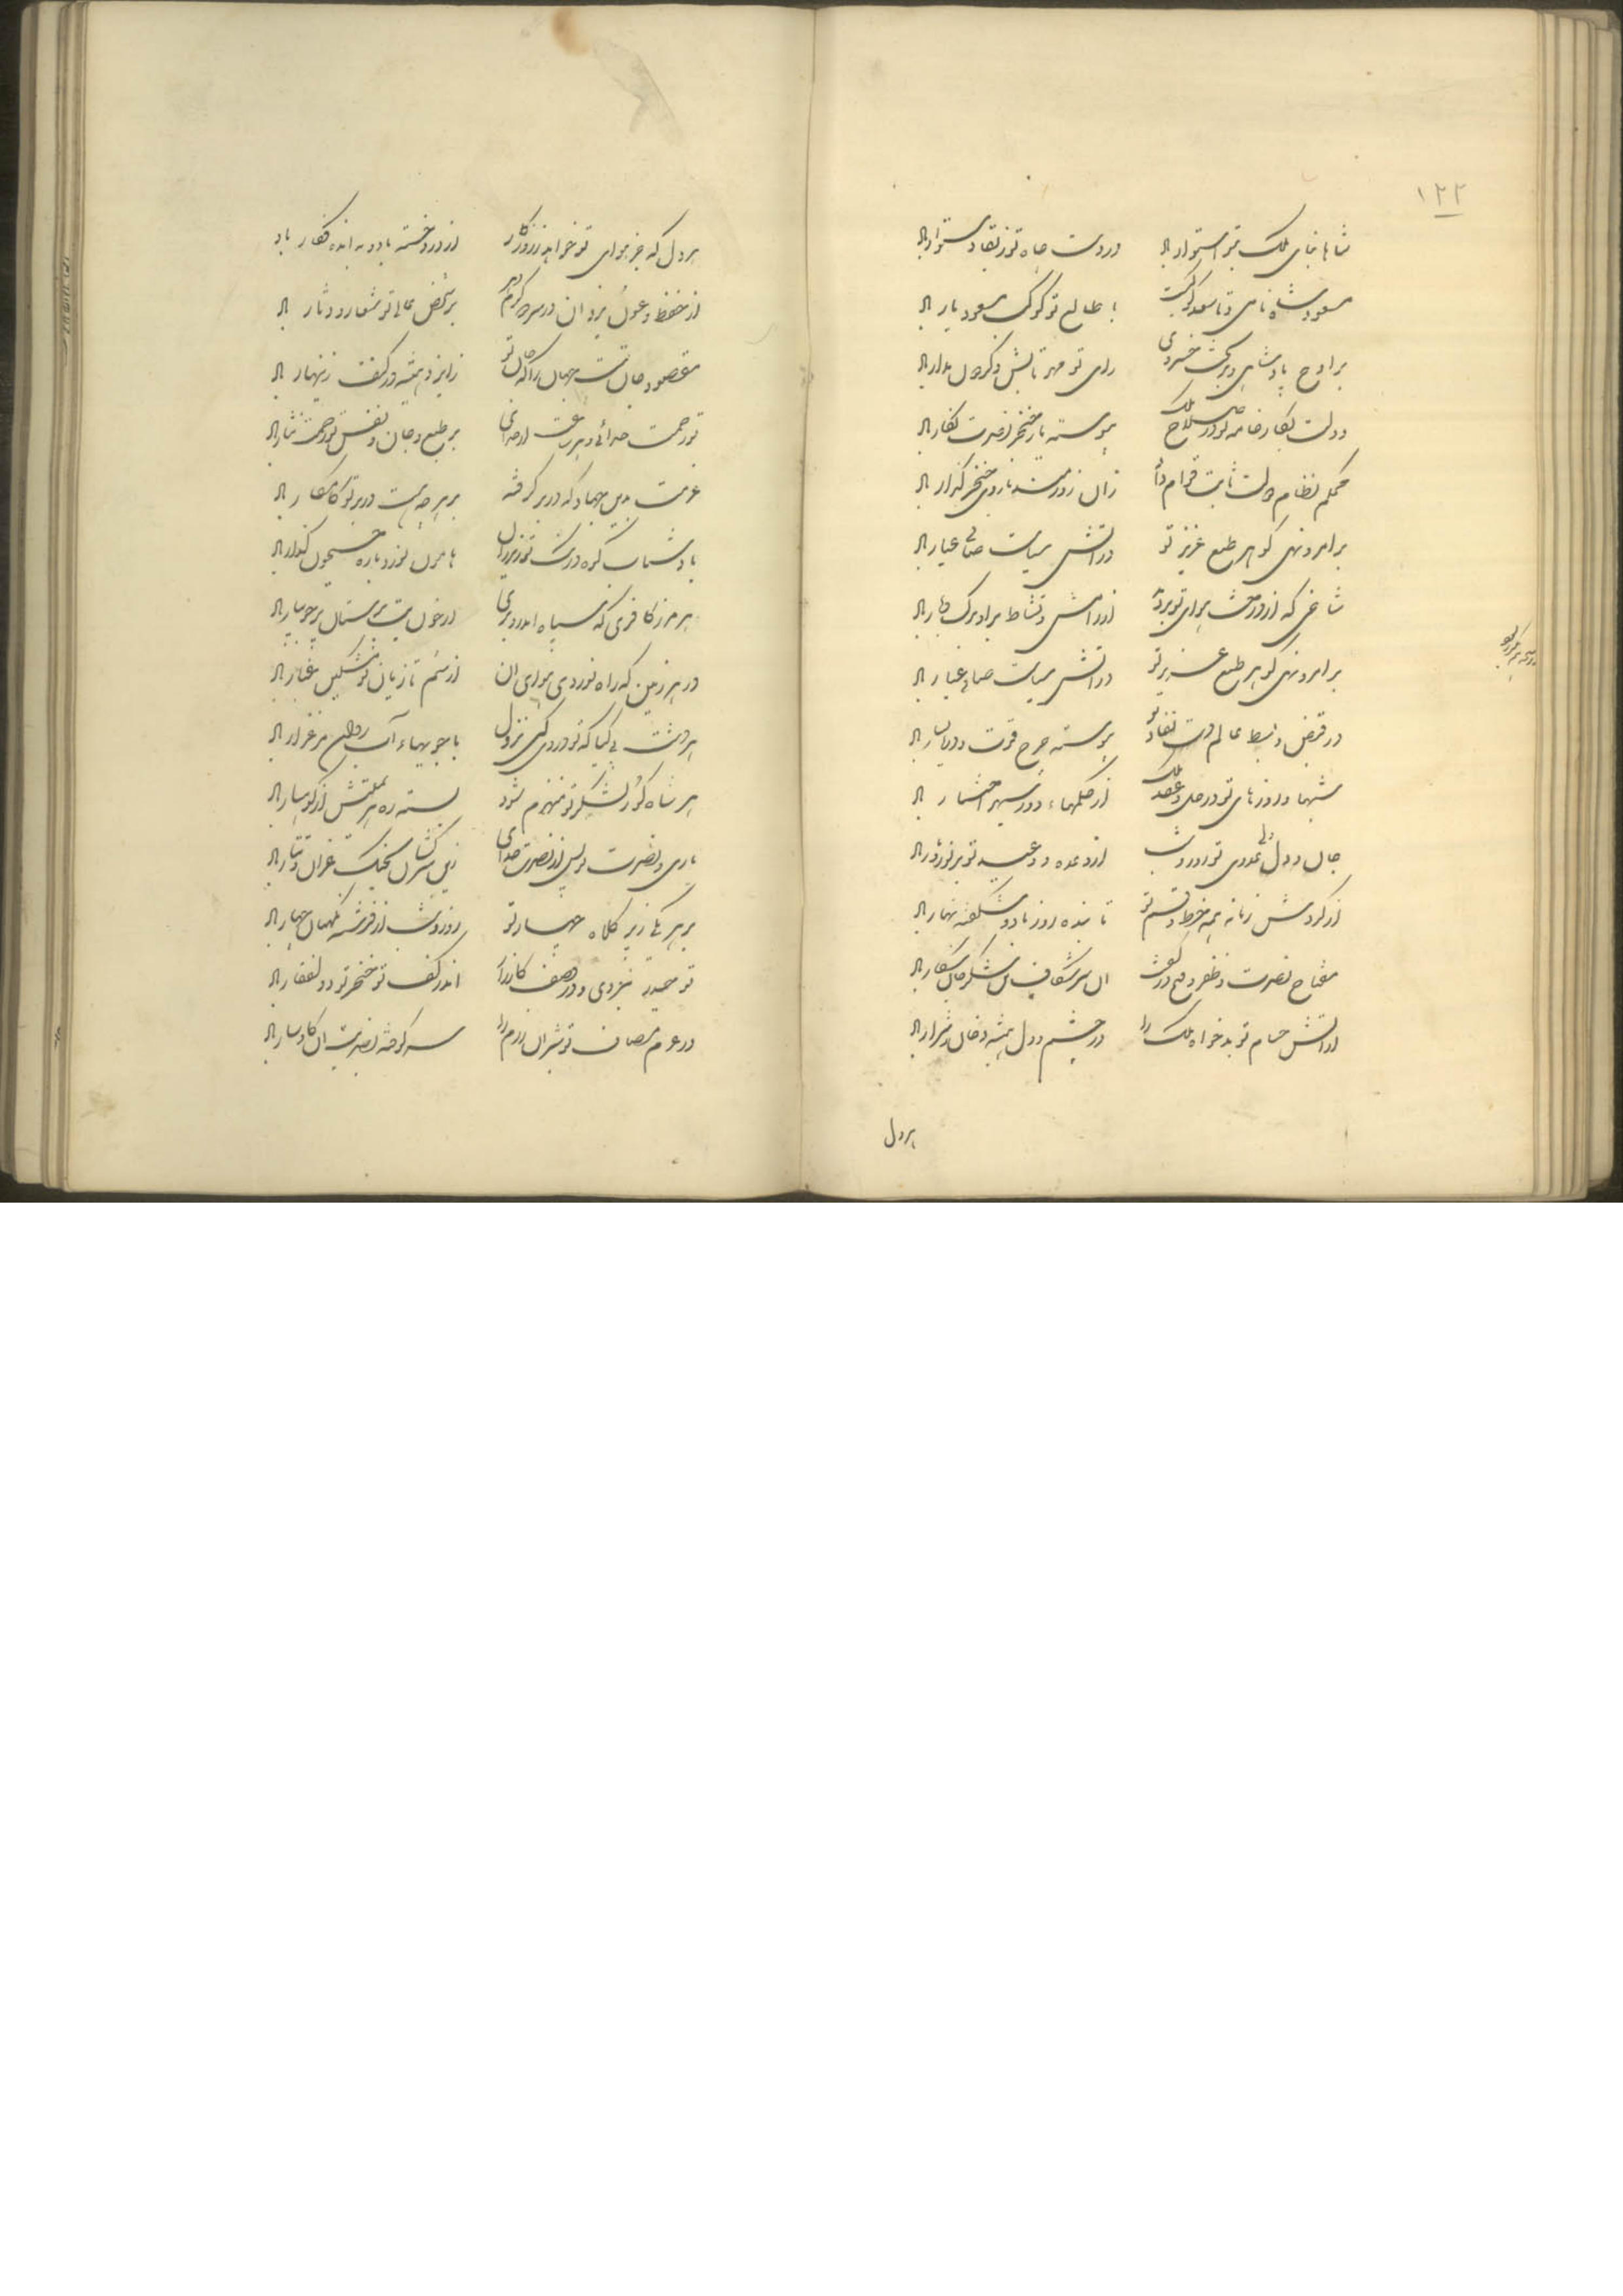 ۱۲۲
شاها بنای ملک بتو استوار باد
در دست جاه تو ز بقا دستوار باد
مسعود شاه نامی و تا سعد کوکبست
با طالع تو کوکب مسعود یار باد
بر اوج پادشاهی و بر تخت خسروی
رای تو مهر تابش و گردون مدار باد
دولت بکار خامه تو در صلاح ملک
پیوسته یار خنجر نصرت نگار باد
محکم نظام دولت ثابت قوام داد
زان زورمند بازوی خنجر گذار باد
برامر و نهی گوهر طبع عزیز تو
در آتش سیاست صافی عیار باد
شاخی که از ورزش برای تو بردهد
از رامش و نشاط برو برگ و بار باد
برامر و نهی گوهر طبع عزیز تو
در آتش سیاست صافی عیار باد
در قبض و بسط عالم دست نفاذ تو
پیوسته چرخ قوت و دریا یسار باد
شبها و روزهای تو در حل و عقد ملک
از حکمهاء دور سپهر اختیار باد
جان و دل ولی و عدوی تو روز و شب
از وعده و وعید تو پر نور و نار باد
از گردش زمانه همه خط و قسم تو
تابنده روز باد و شکفته بهار باد
مفتاح نصرت و ظفر و فتح در کفت
آن سرشکاف تن شکر جان شکار باد
از آتش حسام تو بدخواه ملک را
در چشم و دل همیشه دخان و شرار باد
هر دل
هر دل که جز هوای تو خواهد ز روزگار
از درد خسته باد و به انده فگار باد
از حفظ و عون یزدان در سرد و گرم دهر
بر شخص عالی تو شعار و دثار باد
مقصود جان تست جهان را که جان تو
از ایزد همیشه در کنف زینهار باد
تو رحمت خدائی و هر ساعت از خدای
بر طبع و جان و نفس تو رحمت نثار باد
عزمت بدین جهاد که در بر گرفته
بر هر چه هست در بر تو کامگار باد
بادت شتاب کوه درنگت نورد ران
هامون نورد باره جیحون گذار باد
هر مرز کافری که سپاه اندرو بری
از خون بت پرستان پر جویبار باد
در هر زمین که راه نوردی بروی آن
از سم تازیان تو مشکین غبار باد
هر دشت بی گیا که تو در وی کنی نزول
با جویهاء آب روان مرغزار باد
هر شاه کو ز لشکر تو منهزم شود
بسته ره هزیمتش از کوهسار باد
یاری و نصرت تو بس از نصرت خدای
زین سرکشان بجنگ غزان و تتار باد
بر هر یکی ز زیر کلاه عیار تو
روز و شب از فرشته نگهبان هزار باد
تو حیدر نبردی و در صف کارزار
اندر کف تو خنجر تو ذوالفقار باد
در عزم مصاف تو شیران رزم را
سر کوفته بضربت آن گاوسار باد